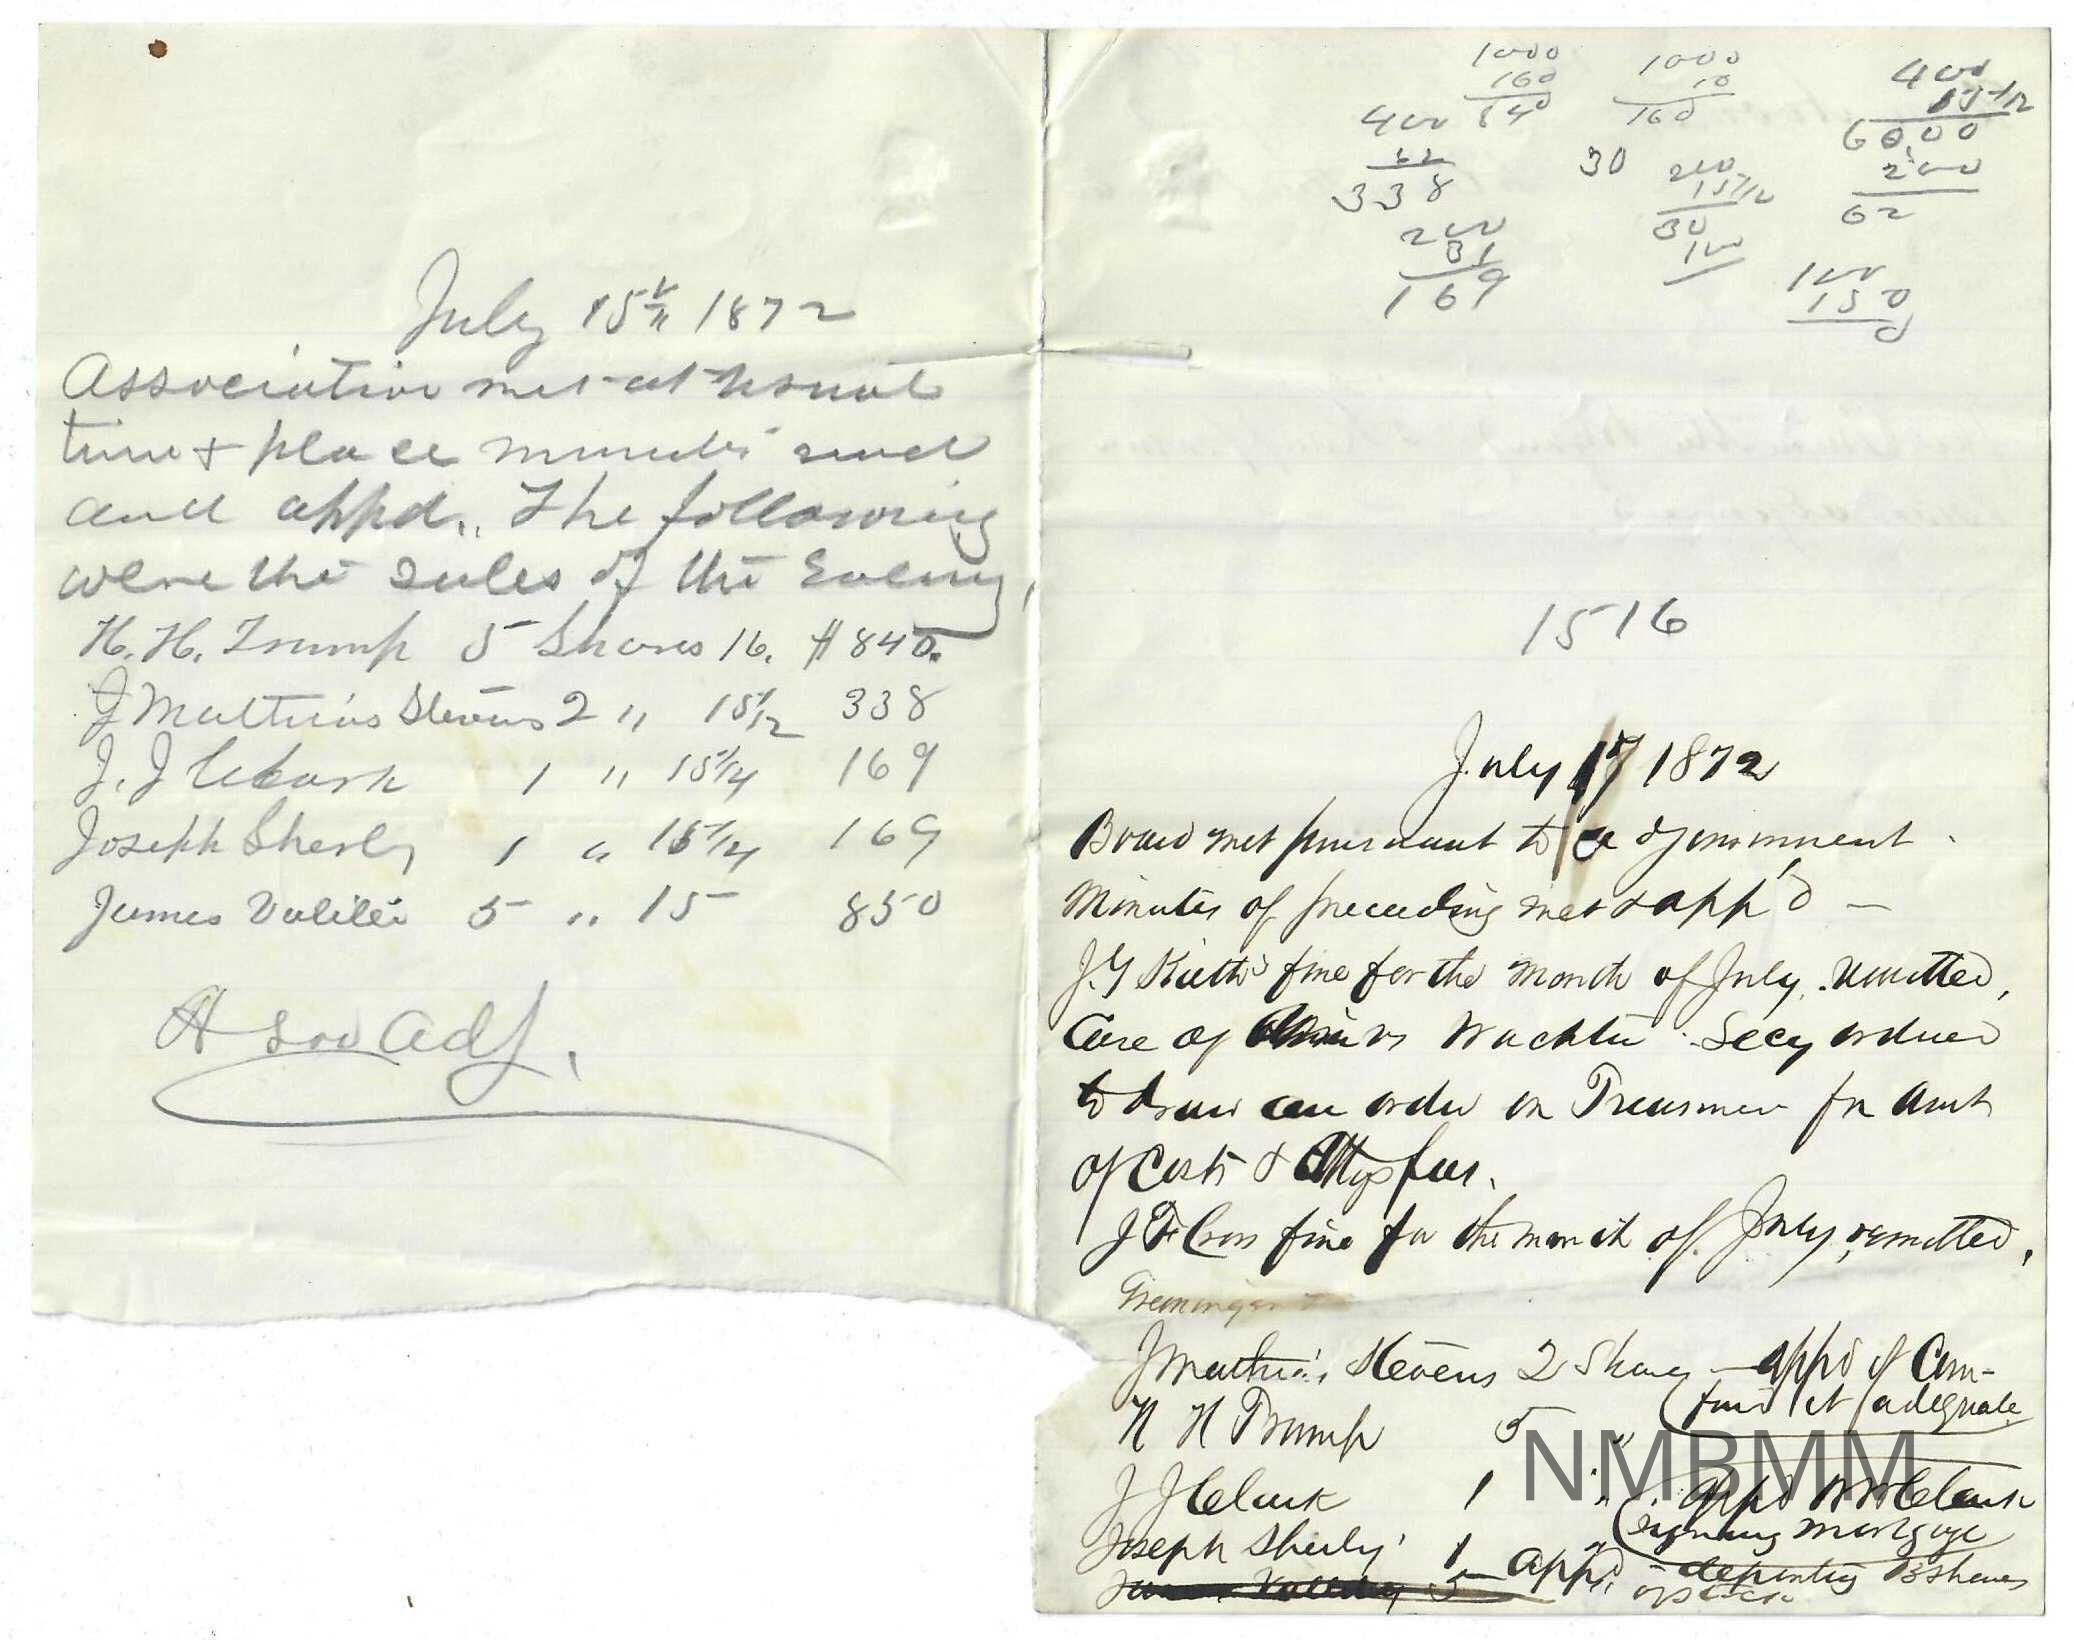 July 15th 1872
Association met at usual
time & place minutes read
and appd. The following
were the sales of the Evening,
H. H. Trump 5 Shares 16. $840.
J Mathias Stevens 2 " 15 1/2 338
J. J Clark 1 " 15 1/4 169
Joseph Sherly 1 " 15 1/4 169
James 5 " 15 850
Adj.
1000
160
840
1000
10
160
400
15 1/2
60,00
200
62
400
62
338
30
200
15 1/2
30
100
200
31
169
150
0
15 16
July 17 1872
Board met pursuant to adjournment.
Minutes of preceeding met & app'd —
J. Y fine for the month of July, remitted,
Case of vs Wachter Secy ordered
to draw an order on Treasurer for amt
of Costs & Attys fees.
J F Cross fine for the month of July, remitted,
J Mathias Stevens 2 Shares — appd if Com-
find it adequate
H H Trump 5 "
J J Clark 1 " appd Clark
signing mortgage
Joseph Sherly 1 appd. depositing 3 shares
of stock
5
NMBMM